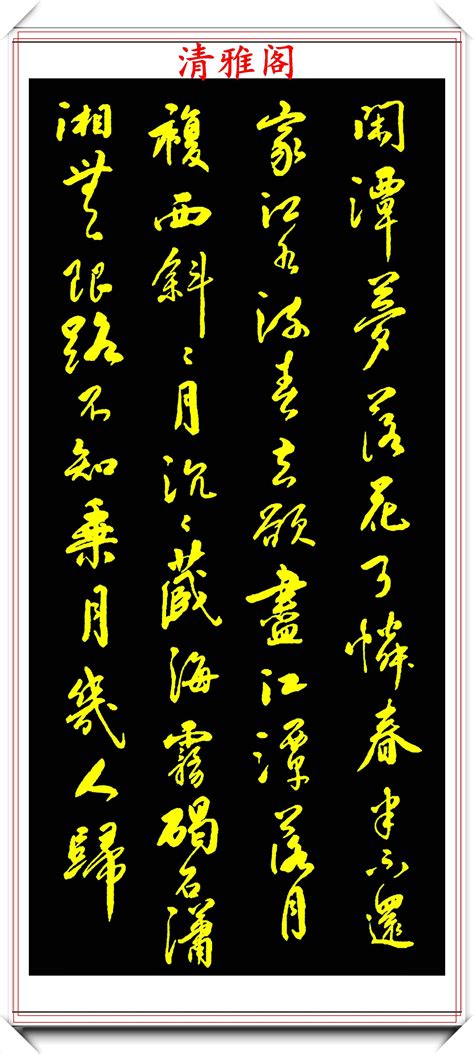 清雅阁
閑潭夢落花可憐春半不還
家江水流春去欲盡江潭落月
複西斜々月沉々藏海霧碣石瀟
湘無限路不知乘月幾人歸